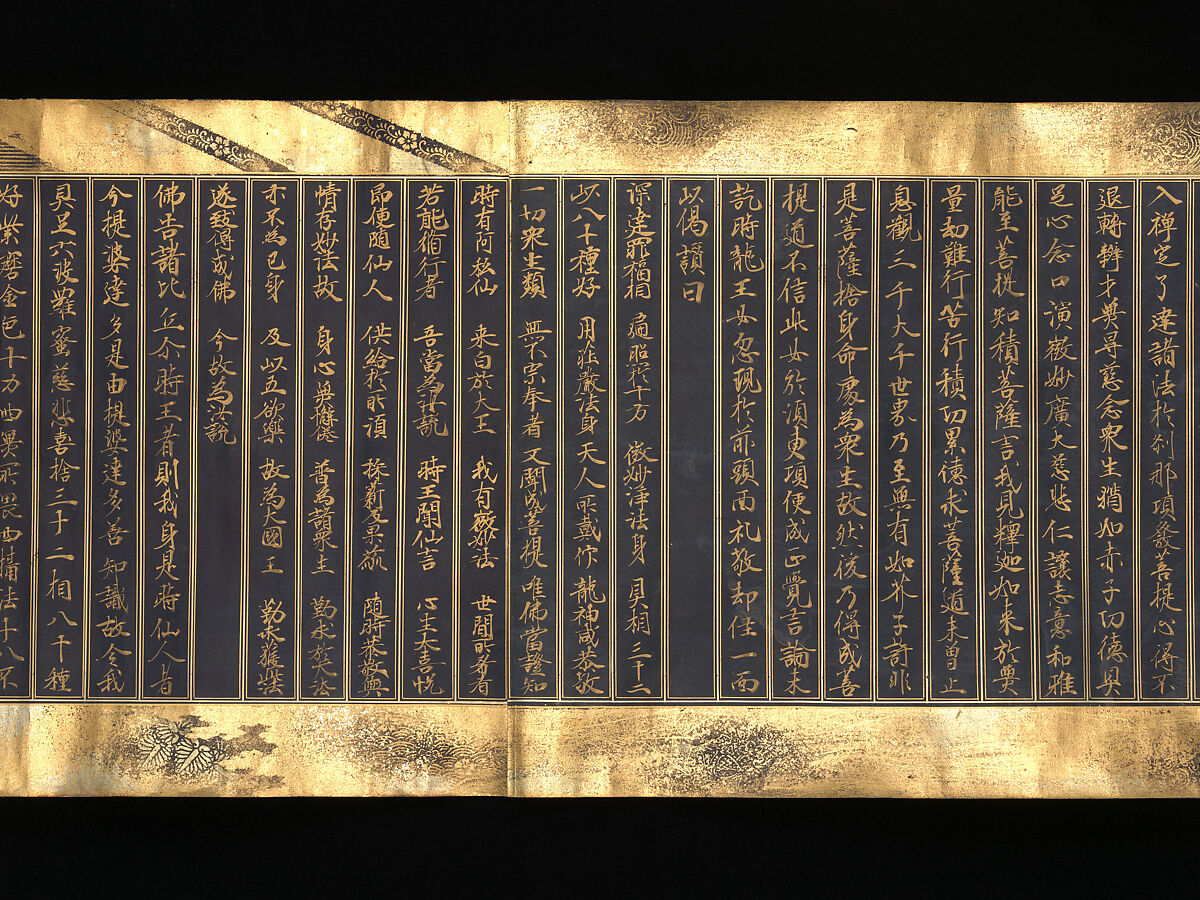 入禪定了達諸法於刹那頃發菩提心得不
退轉辯才無㝵慈念衆生猶如赤子功德具
足心念口演微妙廣大慈悲仁讓志意和雅
能至菩提知積菩薩言我見釋迦如来於無
量劫難行苦行積功累德求菩薩道未曾止
息觀三千大千世界乃至無有如芥子許非
是菩薩捨身命處為衆生故然後乃得成菩
提道不信此女於須臾頃便成正覺言論未
訖時龍王女忽現於前頭面礼敬却住一面
以偈讃曰
深達罪福相 遍照於十方 微妙淨法身 具相三十二
以八十種好 用莊嚴法身 天人所戴仰 龍神咸恭敬
一切衆生類 無不宗奉者 又聞成菩提 唯佛當證知
時有阿私仙 来白於大王 我有微妙法 世間所希有
若能脩行者 吾當為汝說 時王聞仙言 心生大喜悅
即便隨仙人 供給於所須 採薪及菓蓏 隨時恭敬與
情存妙法故 身心無懈惓 普為諸衆生 勤求於大法
亦不為己身 及以五欲樂 故為大國王 勤求獲此法
遂致得成佛 今故為汝說
佛告諸比丘尒時王者則我身是時仙人者
今提婆達多是由提婆達多善知識故令我
具足六波羅蜜慈悲喜捨三十二相八十種
好紫磨金色十力四無所畏四攝法十八不